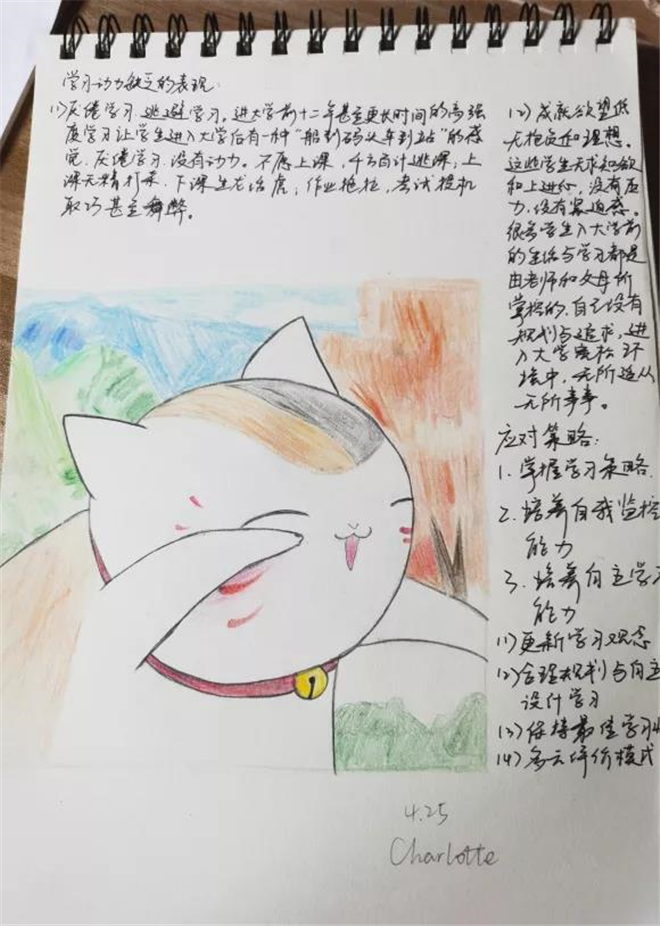 学习动力缺乏的表现:
(1)厌倦学习、逃避学习。进大学前十二年甚至更长时间的高强
度学习让学生进入大学后有一种“船到码头车到站”的感
觉,厌倦学习,没有动力。不愿上课,千方百计逃课;上
课无精打采,下课生龙活虎;作业拖拉,考试投机
取巧甚至舞弊。
(2)成就欲望低
无抱负和理想。
这些学生无求知欲
和上进心,没有压
力、没有紧迫感。
很多学生入大学前
的生活与学习都是
由老师和父母所
掌控的,自己没有
规划与追求,进
入大学宽松环
境中,无所适从
无所事事。
应对策略:
1.掌握学习策略
2.培养自我监控
能力
3.培养自主学习
能力
(1)更新学习观念
(2)合理规划与自主
设计学习
(3)保持最佳学习
(4)多元评价模式
4.25
Charlotte